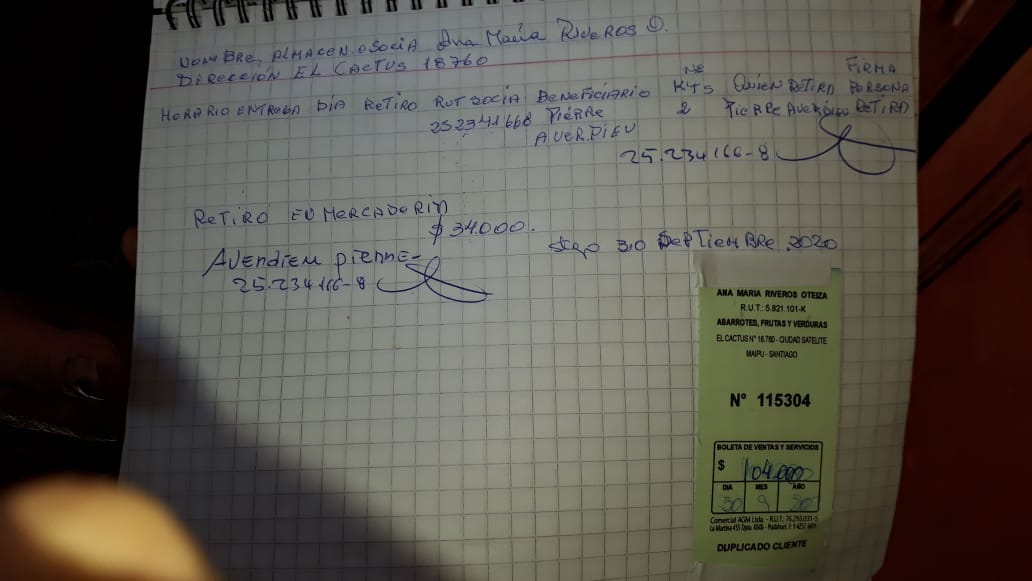 NOMBRE, ALMACEN. O SOCIA Ana María RIVEROS O.
DIRECCIÓN EL CACTUS 18760
HORARIO ENTREGA DIA RETIRO RUT SOCIA BENEFICIARIO Nº KTS QUIEN RETIRA FIRMA PERSONA RETIRA
252341668 PIERRE AVERDIEU 2 PIERRE AVERDIEU
25.234166-8
RETIRÓ EN MERCADERIA
$ 34.000.
Stgo 30 SEPTIEMBRE 2020
25.234166-8
ANA MARIA RIVEROS OTEIZA
R.U.T.: 5.821.101-K
ABARROTES, FRUTAS Y VERDURAS
EL CACTUS N° 18.760 - CIUDAD SATELITE
MAIPU - SANTIAGO
N° 115304
BOLETA DE VENTAS Y SERVICIOS
$ 104.000
DIA MES AÑO
30 9 20
Comercial AGM Ltda. - R.U.T.: 76.293.031-5
DUPLICADO CLIENTE